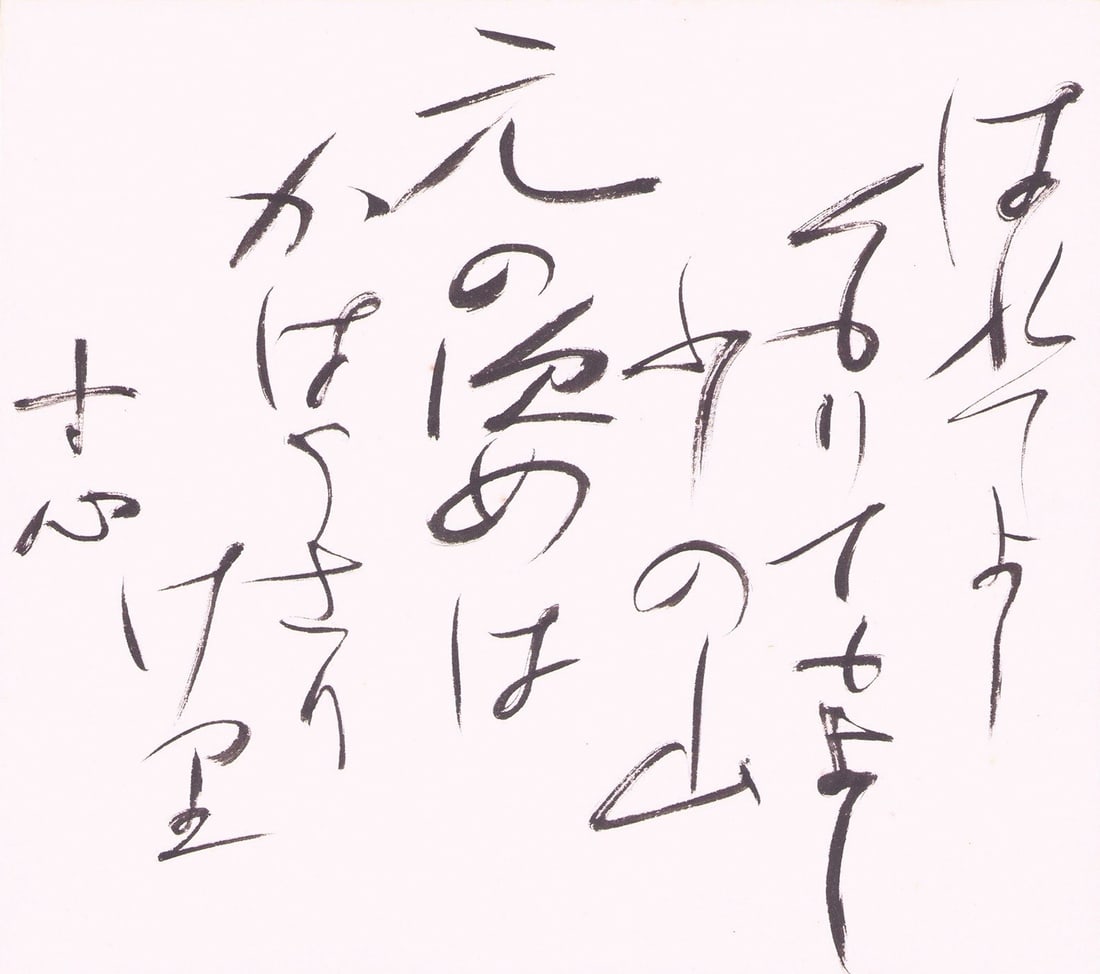 はれてよし
くもりてもよし
ふしの山
元の姿は
かはらさり
け里